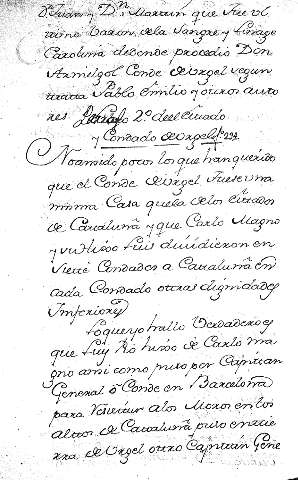 d. Juan y Dn. Martin que fue ul
timo baron de la sangre y linage
Carolina de donde procedio Don
Armelgol Conde de Urgel segun
trata Pablo Emilio y otros auto
res 2º del estado
y Condado de Urgel
No an sido pocos los que han querido
que el Conde de Urgel fuese una
misma Casa que la de los
de Cataluña y que Carlo Magno
y su hijo Luis dividieron en
siete Condados a Cataluña en
cada Condado otras dignidades
Inferiores
Lo que yo hallo Verdadero es
que Luy Pio hijo de Carlo ma
gno asi como puso por Capitan
General o Conde en Barcelona
para resistir a los Moros en los
altos de Cataluña puso en tie
rra de Urgel otro Capitan Gene